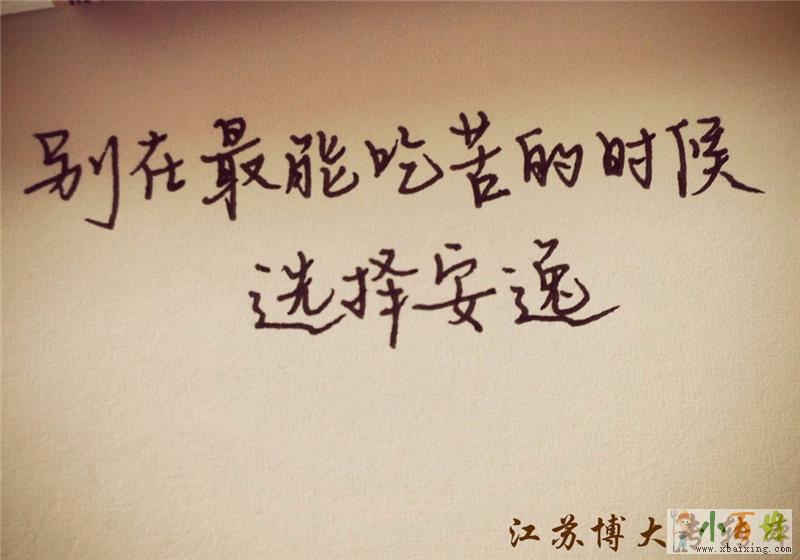 别在最能吃苦的时候
选择安逸
江苏博大
小百姓
www.xbaixing.com